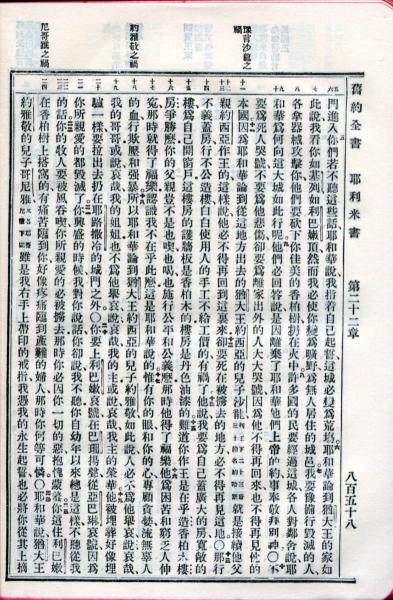 舊約全書　耶利米書　第二十二章　八百五十八
豫言沙龍之禍
約雅敬之禍
門進入你們若不聽這些話耶和華說我指着自己起誓這城必變爲荒塲耶和華論到猶大王的家如
此說我看你如基列如利巴嫩頂然而我必使你變爲曠野爲無人居住的城邑我要豫備行毀滅的人
各拿器械攻擊你他們要砍下你佳美的香柏樹扔在火中許多國的民要經過這城各人對鄰舍說耶
和華爲何向這大城如此行呢他們必回答說是因離棄了耶和華他們上帝的約事奉敬拜別神〇不
要爲死人哭號不要爲他悲傷卻要爲離家出外的人大大哭號因爲他不得再回來也不得再見他的
本國因爲耶和華論到從這地方出去的猶大王約西亞的兒子沙龍就是接續他父
親約西亞作王的這樣說他必不得再回到這裏來卻要死在被擄去的地方必不得再見這地〇那行
不義蓋房行不公造樓白白使用人的手工不給工價的有禍了他說我要爲自己蓋廣大的房寬敞的
樓爲自己開窗戶這樓房的護牆板是香柏木的樓房是丹色油漆的難道你作王是在乎造香柏木樓
房爭勝麼你的父親豈不是也吃也喝也施行公平和公義麼那時他得了福樂他爲困苦和窮乏人伸
冤那時就得了福樂認識我不在乎此麼這是耶和華說的惟有你的眼和你的心專顧貪婪流無辜人
的血行欺壓和強暴所以耶和華論到猶大王約西亞的兒子約雅敬如此說人必不爲他舉哀說哀哉
我的哥哥或說哀哉我的姐姐也不爲他舉哀說哀哉我的主或說哀哉我主的榮華他被埋葬好像埋
驢一樣要拉出去扔在耶路撒冷的城門之外〇你要上利巴嫩哀號在巴珊揚聲從亞巴琳哀號因爲
你所親愛的都毀滅了你興盛的時候我對你說話你卻說我不聽你自幼年以來總是這樣不聽從我
的話你的牧人要被風吞喫你所親愛的必被擄去那時你必因你一切的惡抱愧蒙羞你這住利巴嫩
在香柏樹上搭窩的有痛苦臨到你好像疼痛臨到產難的婦人那時你何等可憐〇耶和華說猶大王
約雅敬的兒子哥尼雅雖是我右手上帶印的戒指我憑我的永生起誓也必將你從其上摘